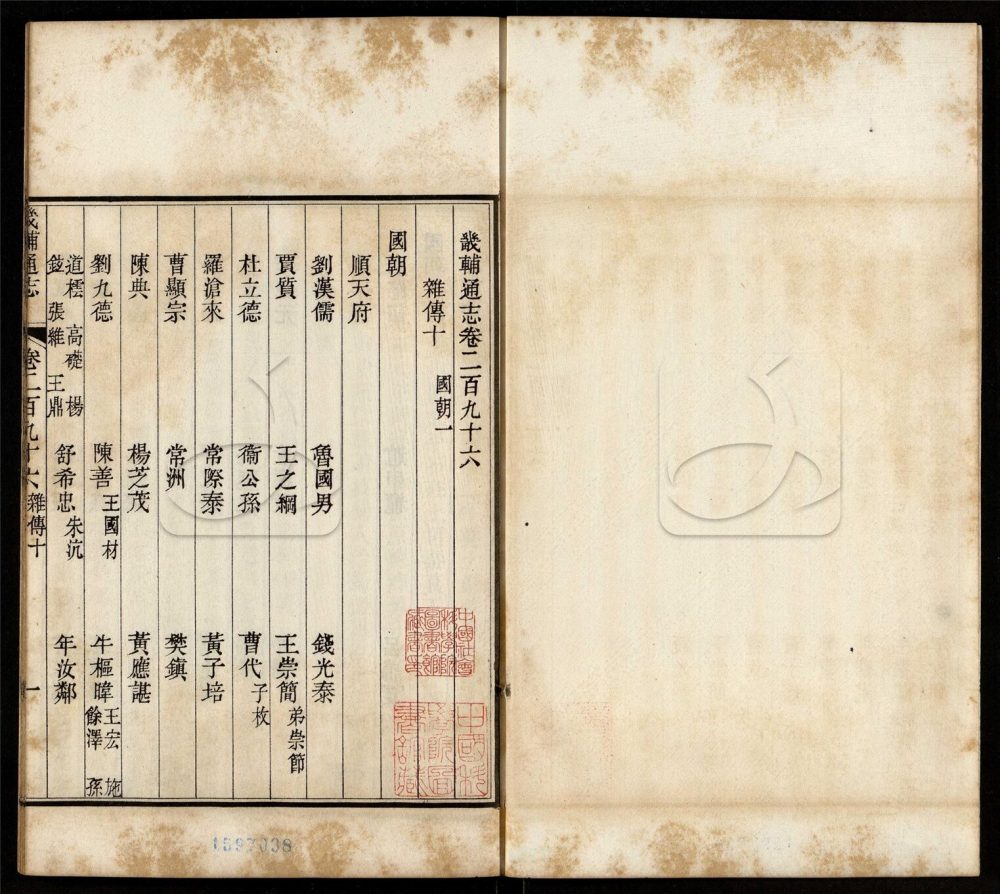 畿輔通志卷二百九十六
雜傳十 國朝一
國朝
順天府
劉漢儒 魯國男 錢光泰
賈質 王之綱 王崇簡 弟崇節
杜立德 衞公孫 曹代 子枚
羅滄來 常際泰 黃子培
曹顯宗 常洲 樊鎮
陳典 楊芝茂 黃應諶
劉九德 陳善 王國材 牛樞暐 王宏 施
餘澤 孫
道檉 高礎 楊
張維 王鼎 舒希忠 朱沆 年汝鄰
畿輔通志 卷二百九十六 雜傳十 一
1597038